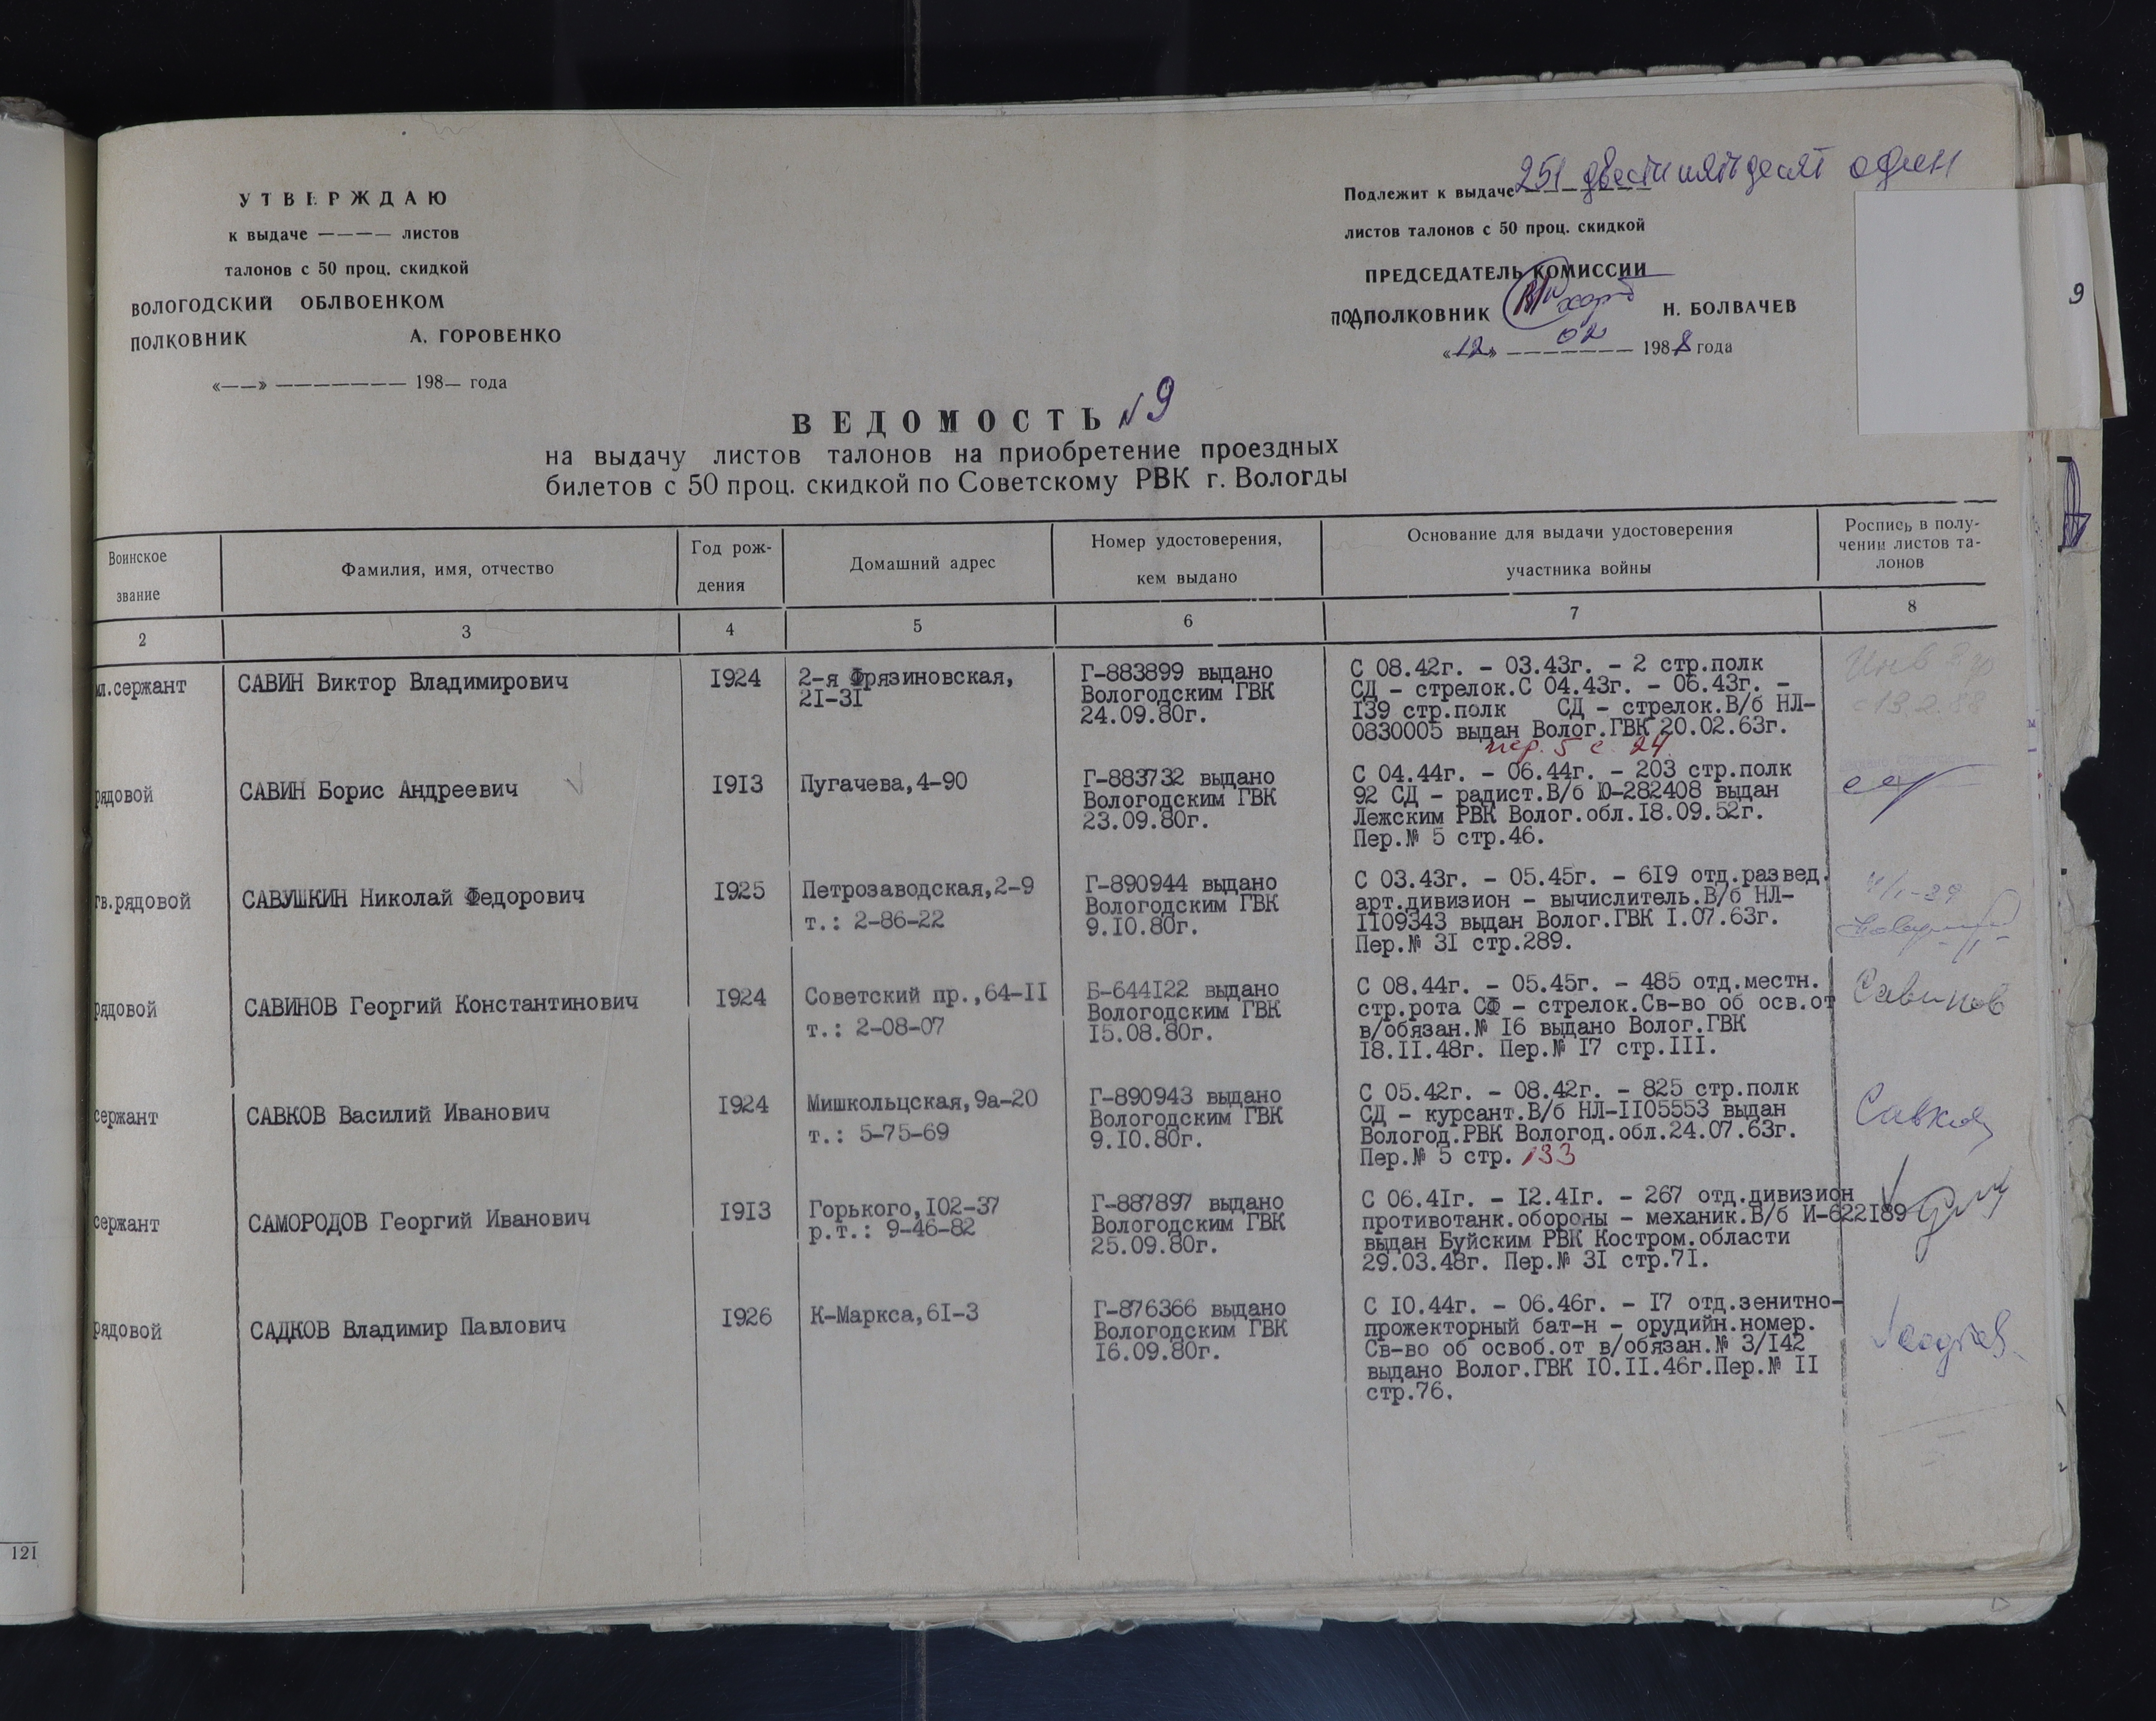 УТВЕРЖДАЮ
к выдаче ———— листов
талонов с 50 проц. скидкой
ВОЛОГОДСКИЙ ОБЛВОЕНКОМ
ПОЛКОВНИК А. ГОРОВЕНКО
«——» ——————— 198— года
Подлежит к выдаче 251 двести пятьдесят один
листов талонов с 50 проц. скидкой
ПРЕДСЕДАТЕЛЬ КОМИССИИ
ПОДПОЛКОВНИК Н. БОЛВАЧЕВ
«12» 02 1988 года
9
ВЕДОМОСТЬ №9
на выдачу листов талонов на приобретение проездных
билетов с 50 проц. скидкой по Советскому РВК г. Вологды
Воинское
звание
Фамилия, имя, отчество
Год рож-
дения
Домашний адрес
Номер удостоверения,
кем выдано
Основание для выдачи удостоверения
участника войны
Роспись в полу-
чении листов та-
лонов
2 3 4 5 6 7 8
мл.сержант
САВИН Виктор Владимирович
1924
2-я Фрязиновская,
21-31
Г-883899 выдано
Вологодским ГВК
24.09.80г.
С 08.42г. - 03.43г. - 2 стр.полк
СД - стрелок.С 04.43г. - 06.43г. -
139 стр.полк СД - стрелок.В/б НЛ-
0830005 выдан Волог.ГВК 20.02.63г.
пер. 5 с. 24
13.2.88
рядовой
САВИН Борис Андреевич
1913
Пугачева,4-90
Г-883732 выдано
Вологодским ГВК
23.09.80г.
С 04.44г. - 06.44г. - 203 стр.полк
92 СД - радист.В/б Ю-282408 выдан
Лежским РВК Волог.обл.18.09.52г.
Пер.№ 5 стр.46.
гв.рядовой
САВУШКИН Николай Федорович
1925
Петрозаводская,2-9
т.: 2-86-22
Г-890944 выдано
Вологодским ГВК
9.10.80г.
С 03.43г. - 05.45г. - 619 отд.развед.
арт.дивизион - вычислитель.В/б НЛ-
1109343 выдан Волог.ГВК 1.07.63г.
Пер.№ 31 стр.289.
рядовой
САВИНОВ Георгий Константинович
1924
Советский пр.,64-11
т.: 2-08-07
Б-644122 выдано
Вологодским ГВК
15.08.80г.
С 08.44г. - 05.45г. - 485 отд.местн.
стр.рота СФ - стрелок.Св-во об осв.от
в/обязан.№ 16 выдано Волог.ГВК
18.11.48г. Пер.№ 17 стр.111.
Савинов
сержант
САВКОВ Василий Иванович
1924
Мишкольцская,9а-20
т.: 5-75-69
Г-890943 выдано
Вологодским ГВК
9.10.80г.
С 05.42г. - 08.42г. - 825 стр.полк
СД - курсант.В/б НЛ-1105553 выдан
Вологод.РВК Вологод.обл.24.07.63г.
Пер.№ 5 стр. 133
Савков
сержант
САМОРОДОВ Георгий Иванович
1913
Горького,102-37
р.т.: 9-46-82
Г-887897 выдано
Вологодским ГВК
25.09.80г.
С 06.41г. - 12.41г. - 267 отд.дивизион
противотанк.обороны - механик.В/б И-622189
выдан Буйским РВК Костром.области
29.03.48г. Пер.№ 31 стр.71.
рядовой
САДКОВ Владимир Павлович
1926
К-Маркса,61-3
Г-876366 выдано
Вологодским ГВК
16.09.80г.
С 10.44г. - 06.46г. - 17 отд.зенитно-
прожекторный бат-н - орудийн.номер.
Св-во об освоб.от в/обязан.№ 3/142
выдано Волог.ГВК 10.11.46г.Пер.№ 11
стр.76.
121